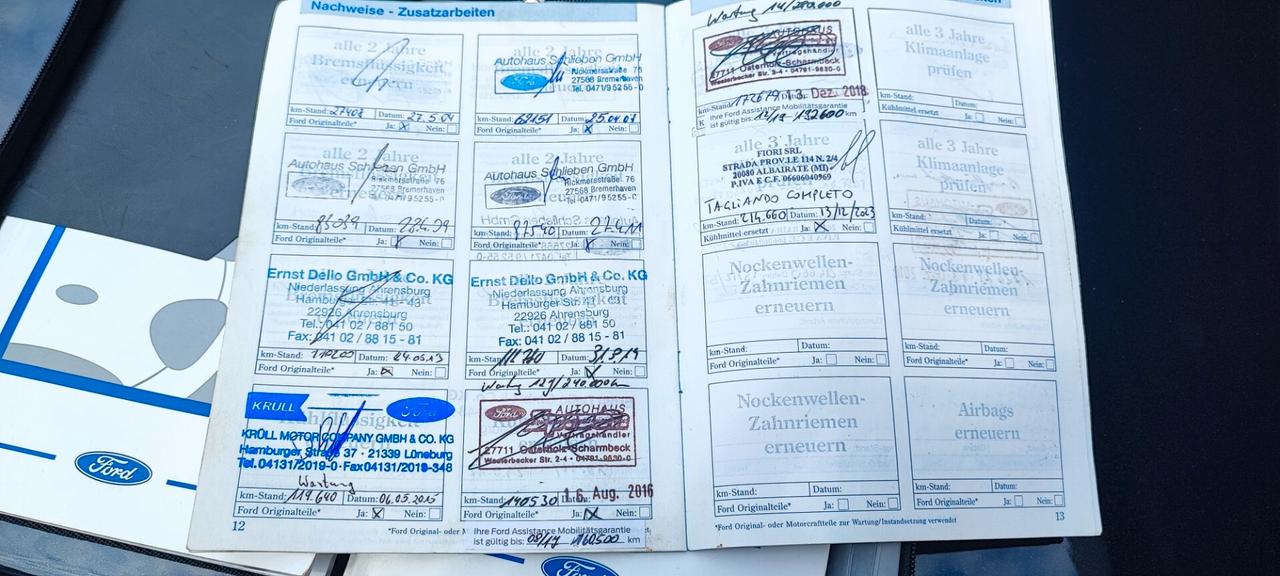 Nachweise - Zusatzarbeiten
alle 2 Jahre
Bremsflüssigkeit
km-Stand: 27407 Datum: 27.5.04
Ford Originalteile* Ja: X Nein:
Autohaus Schlieben GmbH
Ford
Rickmersstraße 76
27568 Bremerhaven
Tel. 0471/9 52 55-0
km-Stand: 62151 Datum: 25.04.07
Ford Originalteile* Ja: X Nein:
alle 2 Jahre
Autohaus Schlieben GmbH
Ford
Rickmersstraße 76
27568 Bremerhaven
Tel. 0471/9 52 55-0
km-Stand: Datum:
Ford Originalteile* Ja: X Nein:
alle 2 Jahre
Autohaus Schlieben GmbH
Ford
Rickmersstraße 76
27568 Bremerhaven
Tel. 0471/9 52 55-0
km-Stand: 87540 Datum: 27.4.11
Ford Originalteile* Ja: X Nein:
Ernst Dello GmbH & Co. KG
Niederlassung Ahrensburg
Hamburger Str. 41 - 43
22926 Ahrensburg
Tel.: 041 02 / 881 50
Fax: 041 02 / 88 15 - 81
km-Stand: 110200 Datum: 24.05.13
Ford Originalteile* Ja: X Nein:
Ernst Dello GmbH & Co. KG
Niederlassung Ahrensburg
Hamburger Str. 41 - 43
22926 Ahrensburg
Tel.: 041 02 / 881 50
Fax: 041 02 / 88 15 - 81
km-Stand: Datum:
Ford Originalteile* Ja: X Nein:
KRÜLL
Ford
KRÜLL MOTOR COMPANY GMBH & CO. KG
Hamburger Straße 37 · 21339 Lüneburg
Tel. 04131/2019-0 · Fax 04131/2019-348
Wartung
km-Stand: 119.640 Datum: 06.05.2015
Ford Originalteile* Ja: X Nein:
Wartung 12J/240.000km
Ford
AUTOHAUS
Vertragshändler
27711 Osterholz-Scharmbeck
Westerbecker Str. 2-4 · 04791-9630-0
km-Stand: 140530 16. Aug. 2016
Ford Originalteile* Ja: X Nein:
Ihre Ford Assistance Mobilitätsgarantie
ist gültig bis: 08/17 160500 km
12
Wartung 14/280.000
Ford
AUTOHAUS
Vertragshändler
27711 Osterholz-Scharmbeck
Westerbecker Str. 2-4 · 04791-9630-0
km-Stand: 172619 13. Dez. 2018
Ihre Ford Assistance Mobilitätsgarantie
ist gültig bis: 12/19 192600 km
alle 3 Jahre
Klimaanlage
prüfen
km-Stand: Datum:
Kühlmittel ersetzt Ja: Nein:
alle 3 Jahre
FIORI SRL
STRADA PROV.LE 114 N. 2/4
20080 ALBAIRATE (MI)
P.IVA E C.F. 06606040969
TAGLIANDO COMPLETO
km-Stand: 214.660 Datum: 13/12/2023
Kühlmittel ersetzt Ja: X Nein:
alle 3 Jahre
Klimaanlage
prüfen
km-Stand: Datum:
Kühlmittel ersetzt Ja: Nein:
Nockenwellen-
Zahnriemen
erneuern
km-Stand: Datum:
Ford Originalteile* Ja: Nein:
Nockenwellen-
Zahnriemen
erneuern
km-Stand: Datum:
Ford Originalteile* Ja: Nein:
Nockenwellen-
Zahnriemen
erneuern
km-Stand: Datum:
Ford Originalteile* Ja: Nein:
Airbags
erneuern
km-Stand: Datum:
Ford Originalteile* Ja: Nein:
*Ford Original- oder Motorcraftteile zur Wartung/Instandsetzung verwendet
13
Ford
Ford